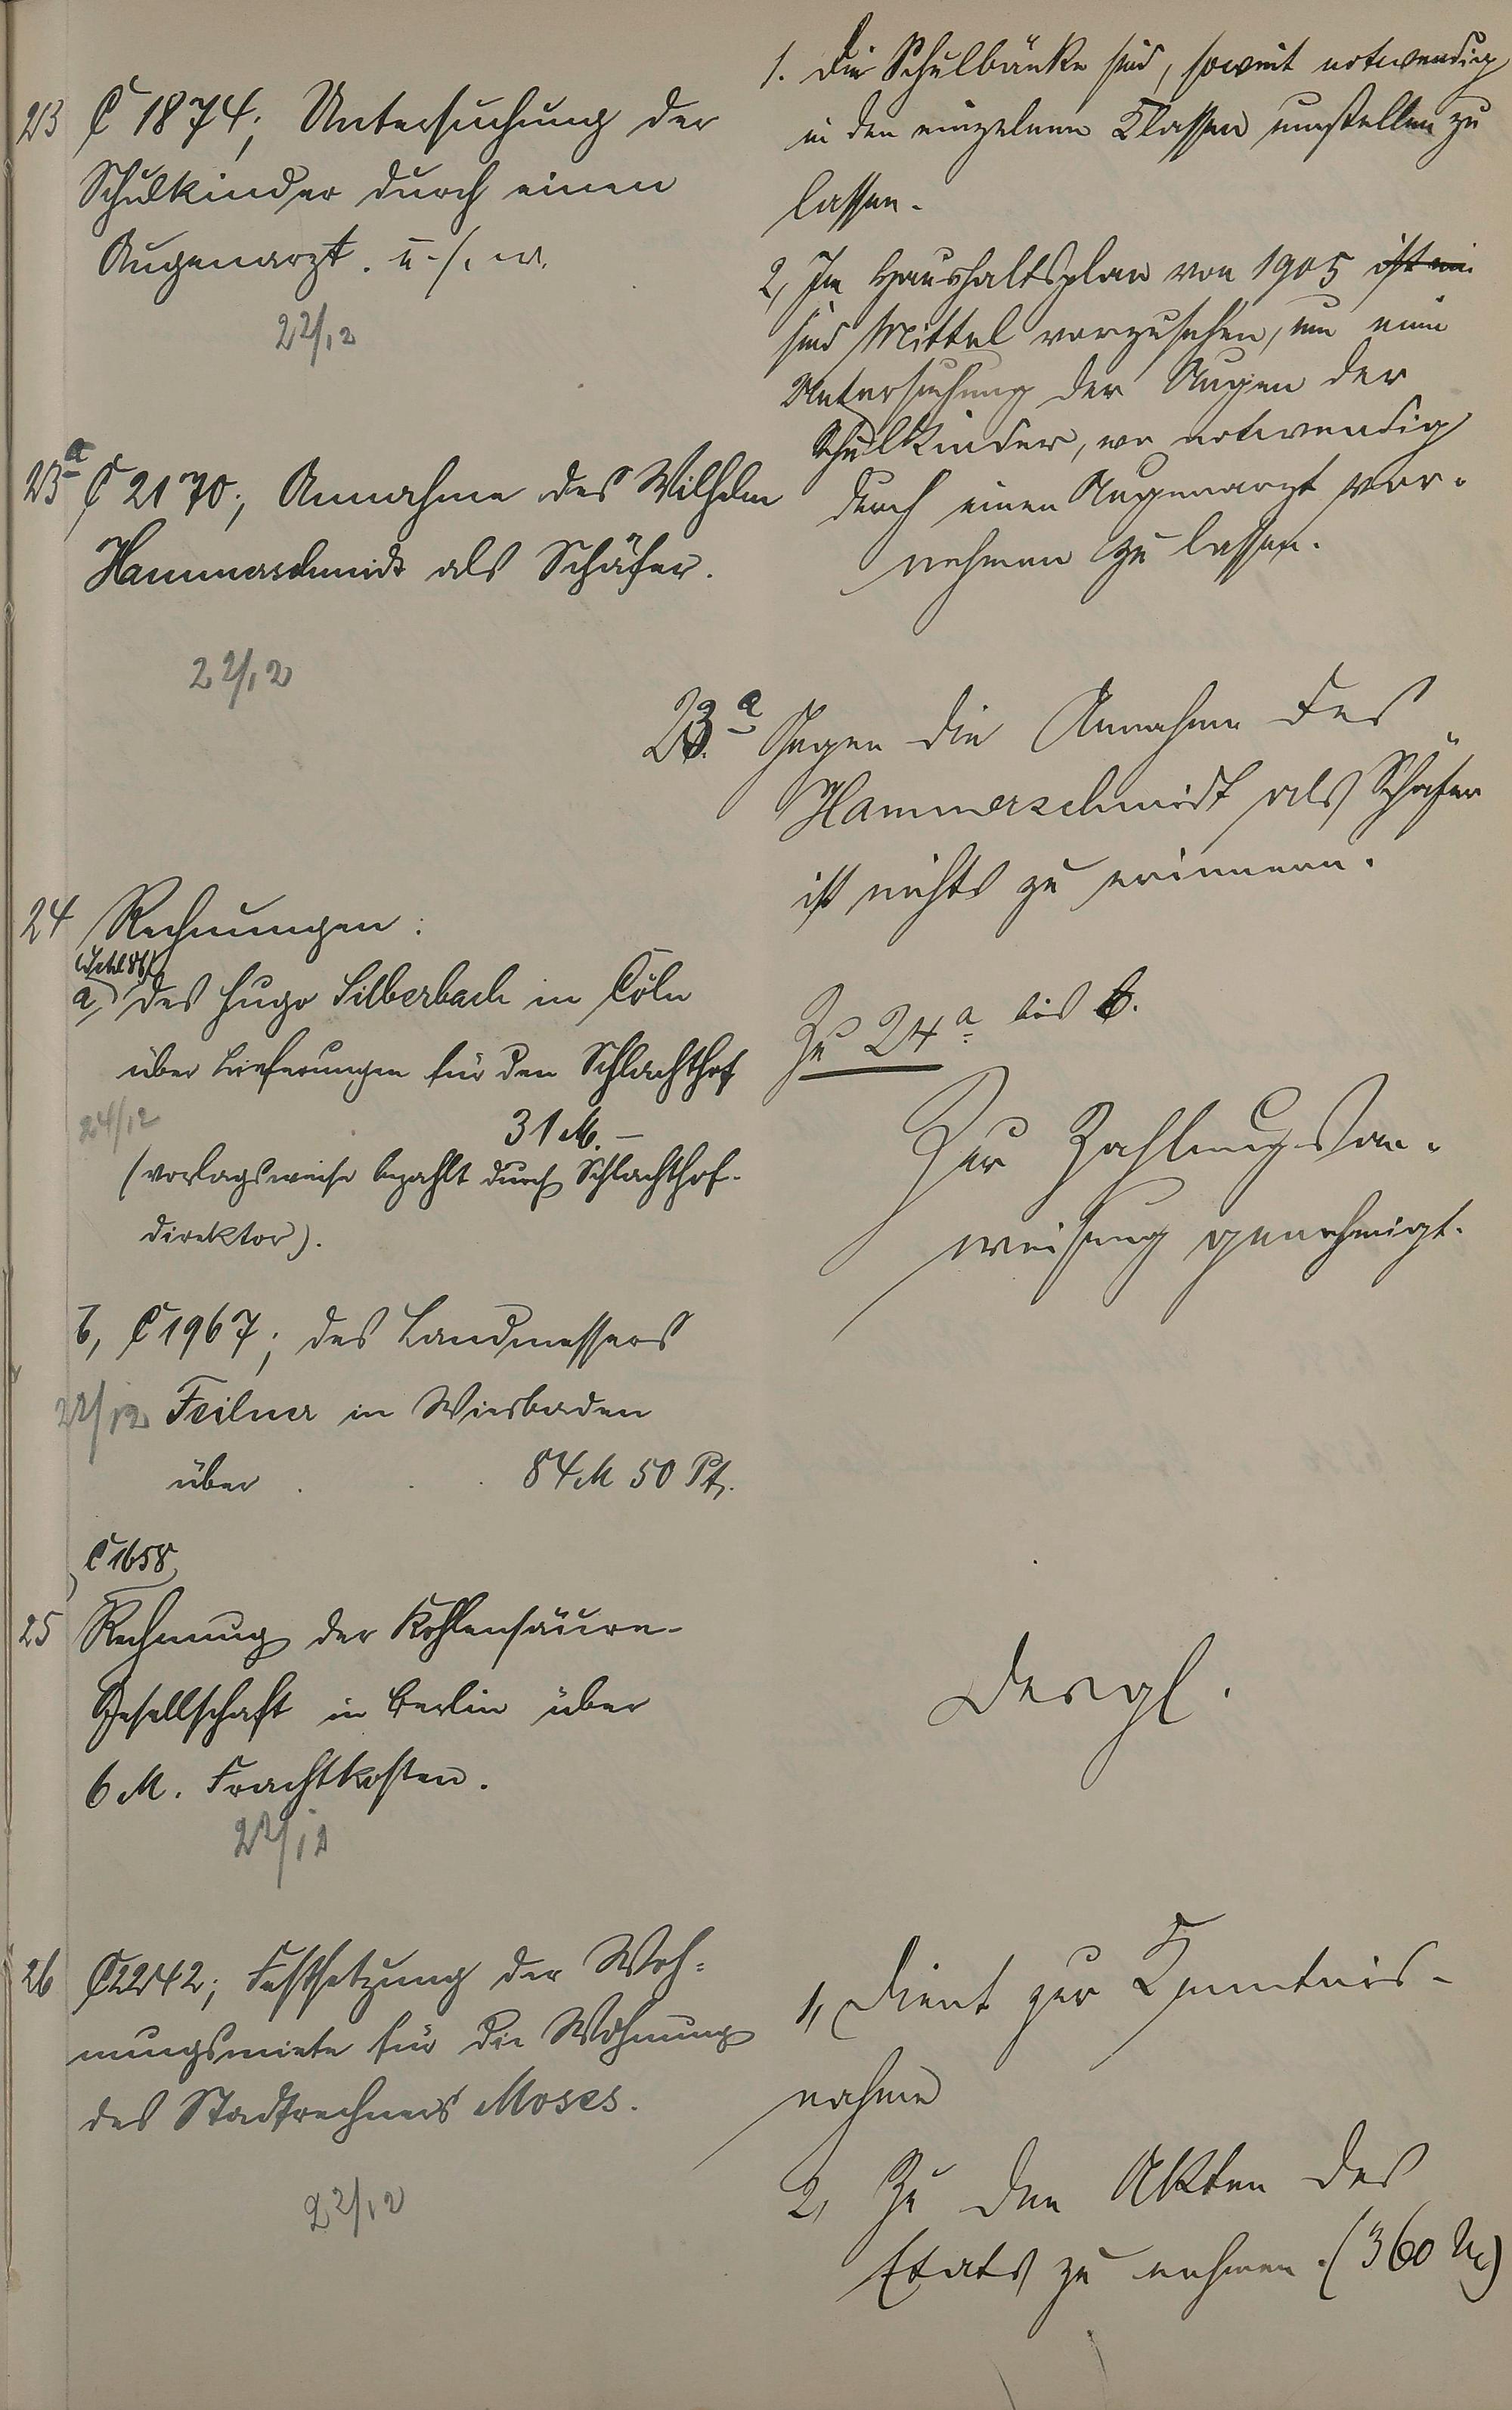 23 C 1874; Untersuchung der
Schulkinder durch einen
Augenarzt. u. s. w.
22/12
1. Die Schulbänke sind, soweit notwendig
in den einzelnen Klassen umstellen zu
lassen.
2, Im Haushaltsplan von 1905 ist ein
sind Mittel vorzusehen, um eine
Untersuchung der Augen der
Schulkinder, wo notwendig
durch einen Augenarzt vor-
nehmen zu lassen.
23a C 2170; Annahme des Wilhelm
Hammerschmidt als Schäfer.
22/12
23.a Gegen die Annahme des
Hammerschmidt als Schäfer
ist nichts zu erinnern.
24 Rechnungen:
a, des Hugo Silberbach in Cöln
über Lieferungen für den Schlachthof
24/12
31 M. –
(vorlagsweise bezahlt durch Schlachthof-
direktor).
Zu 24a bis b.
Zur Zahlungsan-
weisung genehmigt.
b, C 1967; des Landmessers
22/12 Feilner in Wiesbaden
über . . . 84 M 50 Pf.
C 1658
25 Rechnung der Kohlensäure-
Gesellschaft in Berlin über
6 M. Frachtkosten.
22/12
Desgl.
26 C 2242; Festsetzung der Woh-
nungsmiete für die Wohnung
des Stadtrechners Moses.
22/12
1, Dient zur Kenntnis-
nahme
2, Zu den Akten des
Etats zu nehmen. (360 M)